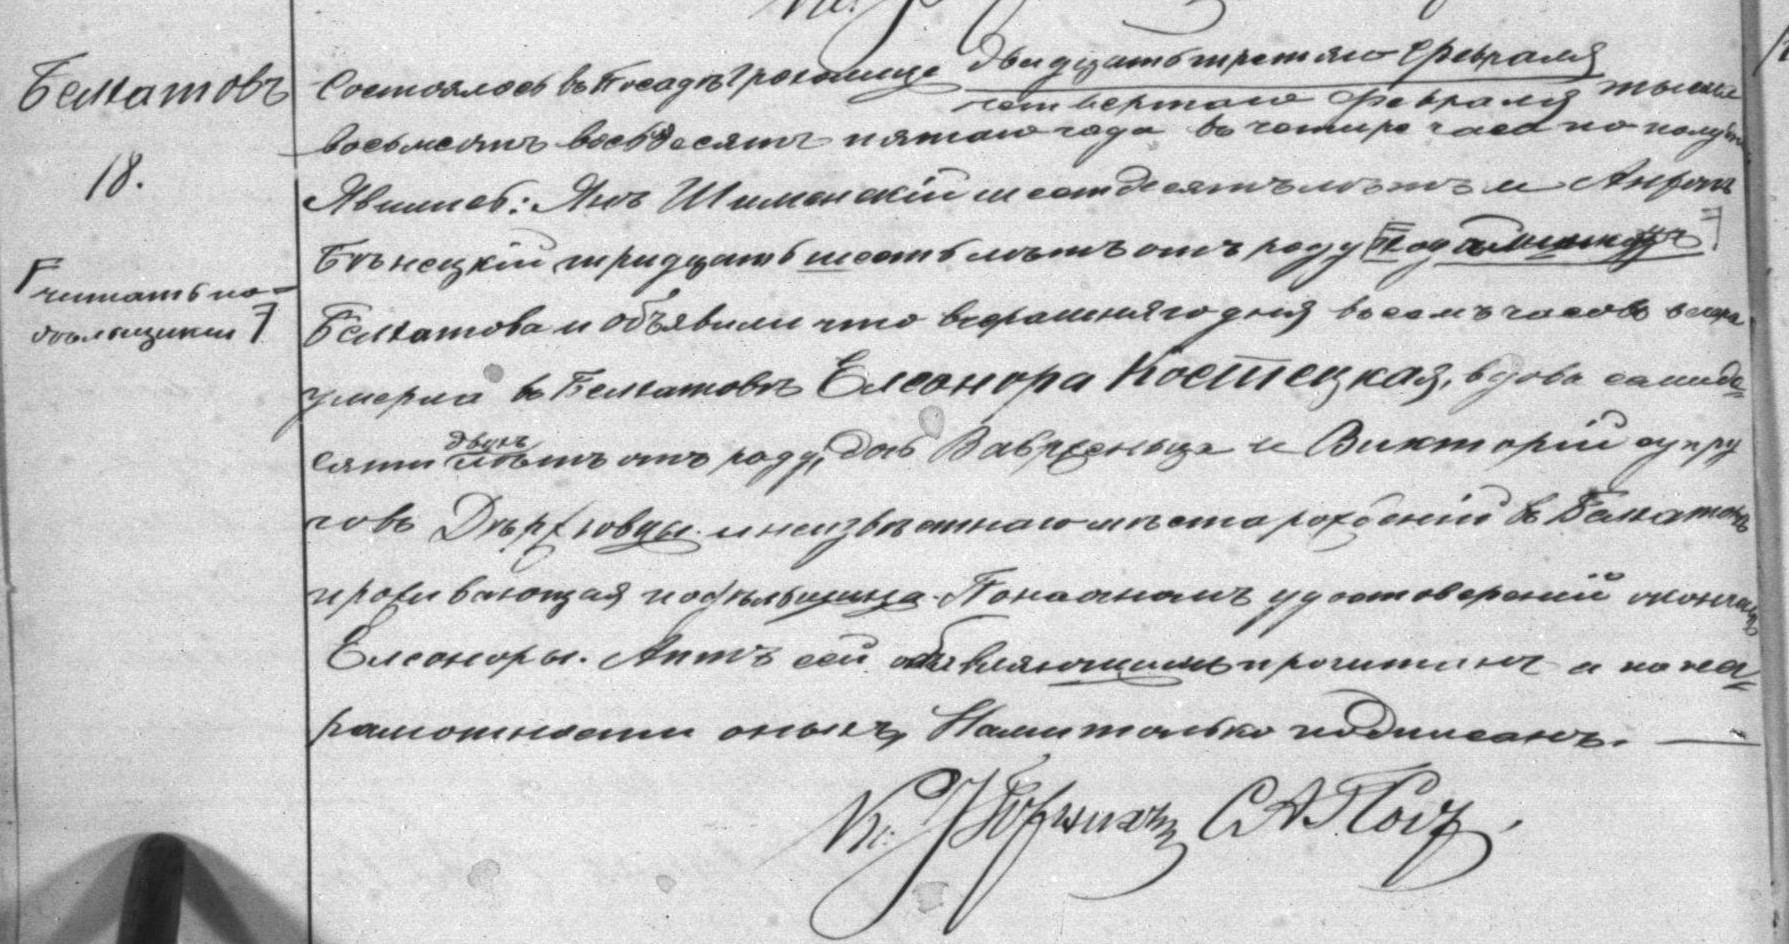 Белхатовъ
18.
читать по-
дѣльщики
Состоялось въ Посадѣ Грохолице двадцать третяго Февраля
четвертаго Февраля тысяча
восьмсотъ восьмдесятъ пятаго года въ четыре часа по полудни
Явились: Янъ Шиманскій шестдесятъ лѣтъ и Антонъ
Бѣнецкій тридцать шесть лѣтъ отъ роду
Белхатова и объявили что вчерашняго дня восемъ часовъ вечера
умерла въ Белхатовѣ Елеонора Костецкая, вдова семиде-
сяти двухъ лѣтъ отъ роду, дочь Ваврженьца и Викторіи супру
говъ и неизвѣстнаго мѣста рожденій въ Белхатовѣ
проживающая подѣльщица. По настномъ удостовереніи о кончинѣ
Елеоноры. Актъ сей объявляющимъ прочитанъ а по не-
грамотности оныхъ, Нами только подписанъ.